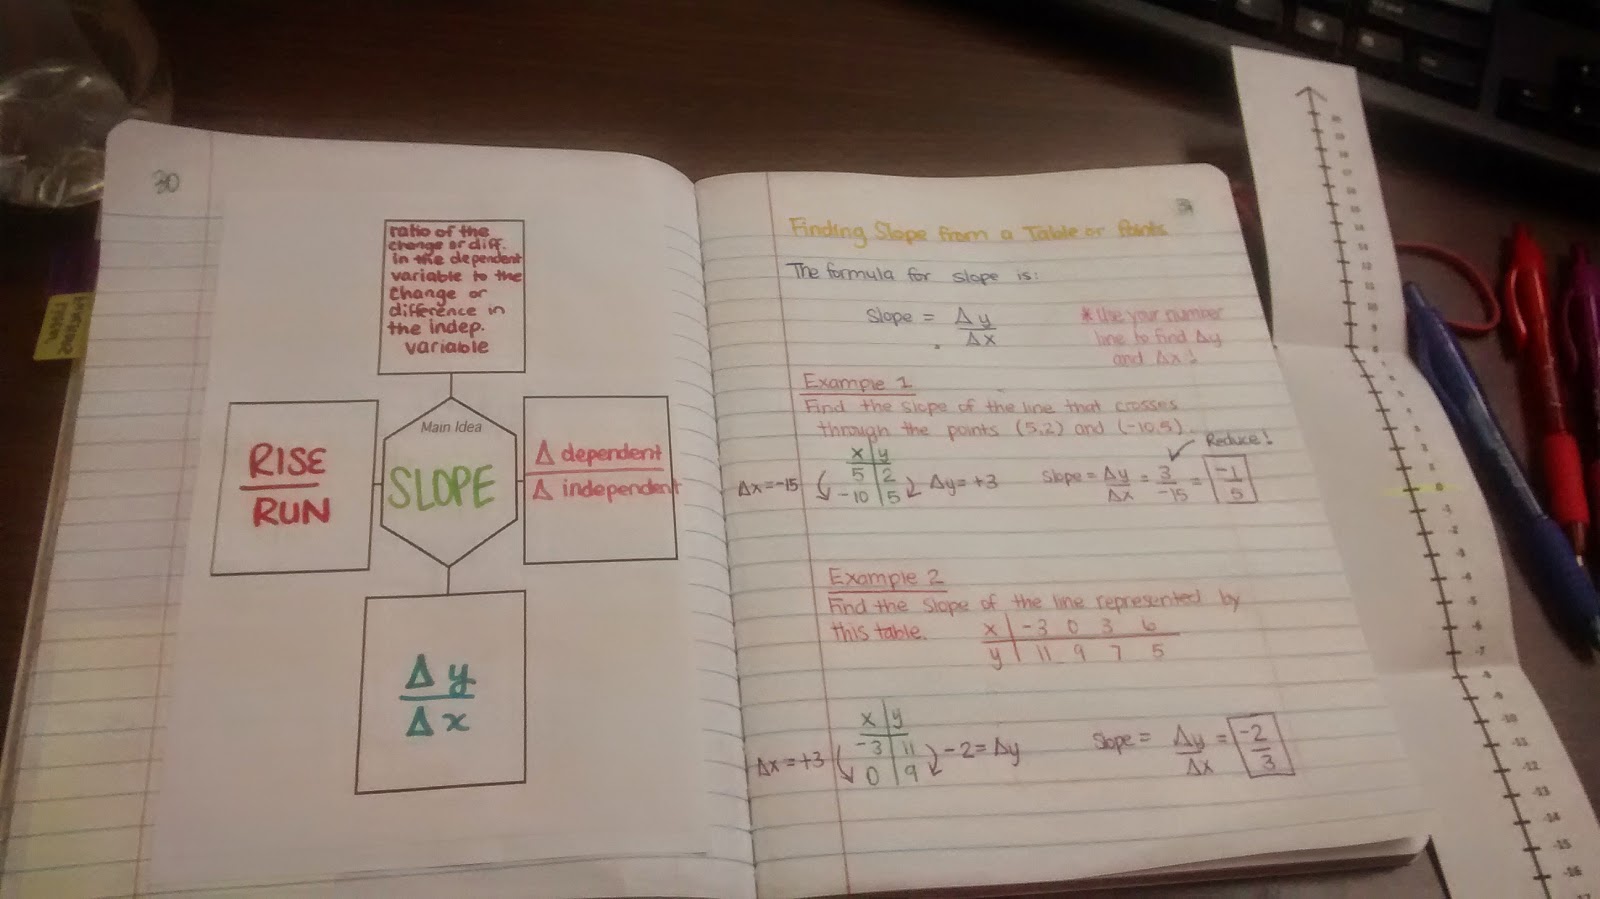 30
ratio of the
change or diff.
in the dependent
variable to the
change or
difference in
the indep.
variable
RISE
RUN
Main Idea
SLOPE
Δ dependent
Δ independent
Δ y
Δ x
Finding Slope from a Table or Points
The formula for slope is:
Slope = Δy
Δx
*Use your number
line to find Δy
and Δx!
Example 1
Find the slope of the line that crosses
through the points (5,2) and (-10,5).
x y
5 2
-10 5
Δx=-15
Δy=+3
Reduce!
Slope = Δy = 3 = -1
Δx -15 5
Example 2
Find the slope of the line represented by
this table.
x -3 0 3 6
y 11 9 7 5
x y
-3 11
0 9
Δx=+3
-2=Δy
Slope = Δy = -2
Δx 3
0
-1
-2
-3
-4
-5
-6
-7
-8
-9
-10
-11
-12
-13
-14
-15
-16